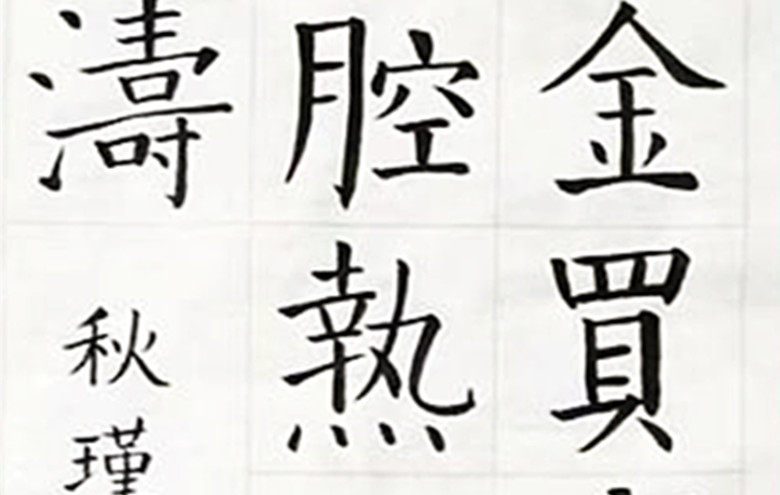 金買
腔熱
濤
秋瑾